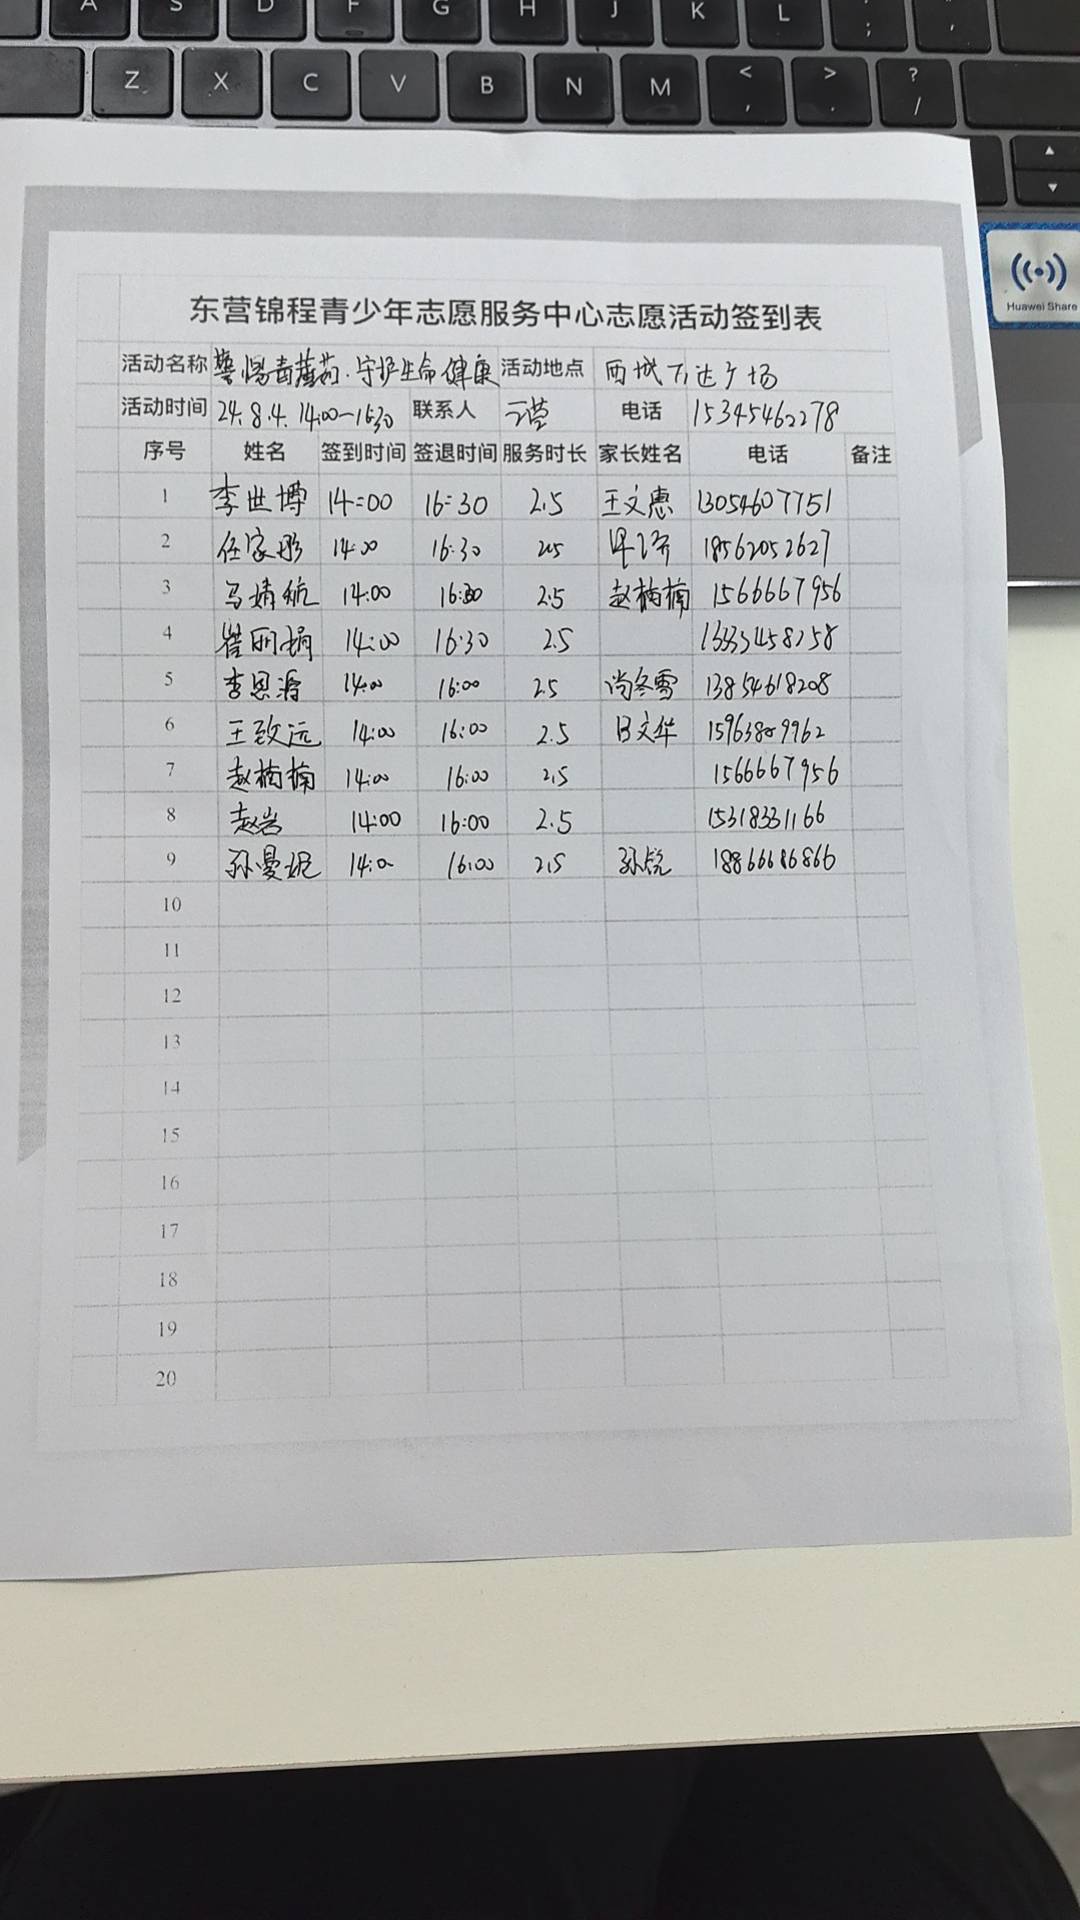 A S D F G H J K L : ;
Z X C V B N M < , > . ? /
Huawei Share
东营锦程青少年志愿服务中心志愿活动签到表
活动名称 警惕毒蘑菇·守护生命健康 活动地点 西城万达广场
活动时间 24.8.4. 14:00-16:30 联系人 电话 15345462278
序号 姓名 签到时间 签退时间 服务时长 家长姓名 电话 备注
1 李世博 14:00 16:30 2.5 王文惠 13054607751
2 任家彤 14:00 16:30 2.5 18562052627
3 马婧航 14:00 16:30 2.5 赵楠楠 1566667956
4 崔丽娟 14:00 16:30 2.5
5 李思源 14:00 16:00 2.5 尚冬雪 13854618208
6 王致远 14:00 16:00 2.5 吕文华
7 赵楠楠 14:00 16:00 2.5 1566667956
8 赵岩 14:00 16:00 2.5 15318331166
9 孙曼妮 14:00 16:00 2.5 孙锐 18866686866
10
11
12
13
14
15
16
17
18
19
20